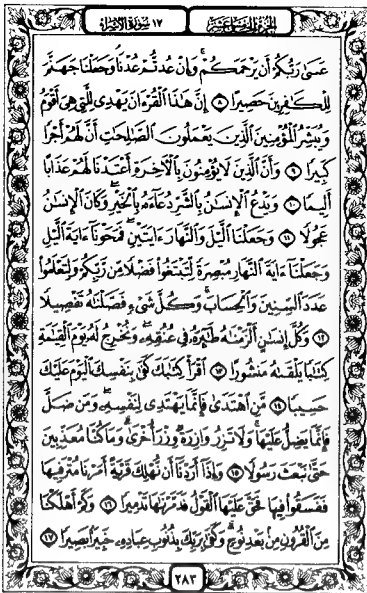 الجزء الخامس عشر
١٧ سورة الإسراء
عَسَىٰ رَبُّكُمْ أَن يَرْحَمَكُمْ ۚ وَإِنْ عُدتُّمْ عُدْنَا ۘ وَجَعَلْنَا جَهَنَّمَ
لِلْكَافِرِينَ حَصِيرًا ٨ إِنَّ هَٰذَا الْقُرْآنَ يَهْدِي لِلَّتِي هِيَ أَقْوَمُ
وَيُبَشِّرُ الْمُؤْمِنِينَ الَّذِينَ يَعْمَلُونَ الصَّالِحَاتِ أَنَّ لَهُمْ أَجْرًا
كَبِيرًا ٩ وَأَنَّ الَّذِينَ لَا يُؤْمِنُونَ بِالْآخِرَةِ أَعْتَدْنَا لَهُمْ عَذَابًا
أَلِيمًا ١٠ وَيَدْعُ الْإِنسَانُ بِالشَّرِّ دُعَاءَهُ بِالْخَيْرِ ۖ وَكَانَ الْإِنسَانُ
عَجُولًا ١١ وَجَعَلْنَا اللَّيْلَ وَالنَّهَارَ آيَتَيْنِ ۖ فَمَحَوْنَا آيَةَ اللَّيْلِ
وَجَعَلْنَا آيَةَ النَّهَارِ مُبْصِرَةً لِّتَبْتَغُوا فَضْلًا مِّن رَّبِّكُمْ وَلِتَعْلَمُوا
عَدَدَ السِّنِينَ وَالْحِسَابَ ۚ وَكُلَّ شَيْءٍ فَصَّلْنَاهُ تَفْصِيلًا
١٢ وَكُلَّ إِنسَانٍ أَلْزَمْنَاهُ طَائِرَهُ فِي عُنُقِهِ ۖ وَنُخْرِجُ لَهُ يَوْمَ الْقِيَامَةِ
كِتَابًا يَلْقَاهُ مَنشُورًا ١٣ اقْرَأْ كِتَابَكَ كَفَىٰ بِنَفْسِكَ الْيَوْمَ عَلَيْكَ
حَسِيبًا ١٤ مَّنِ اهْتَدَىٰ فَإِنَّمَا يَهْتَدِي لِنَفْسِهِ ۖ وَمَن ضَلَّ
فَإِنَّمَا يَضِلُّ عَلَيْهَا ۚ وَلَا تَزِرُ وَازِرَةٌ وِزْرَ أُخْرَىٰ ۗ وَمَا كُنَّا مُعَذِّبِينَ
حَتَّىٰ نَبْعَثَ رَسُولًا ١٥ وَإِذَا أَرَدْنَا أَن نُّهْلِكَ قَرْيَةً أَمَرْنَا مُتْرَفِيهَا
فَفَسَقُوا فِيهَا فَحَقَّ عَلَيْهَا الْقَوْلُ فَدَمَّرْنَاهَا تَدْمِيرًا ١٦ وَكَمْ أَهْلَكْنَا
مِنَ الْقُرُونِ مِن بَعْدِ نُوحٍ ۗ وَكَفَىٰ بِرَبِّكَ بِذُنُوبِ عِبَادِهِ خَبِيرًا بَصِيرًا ١٧
٢٨٣